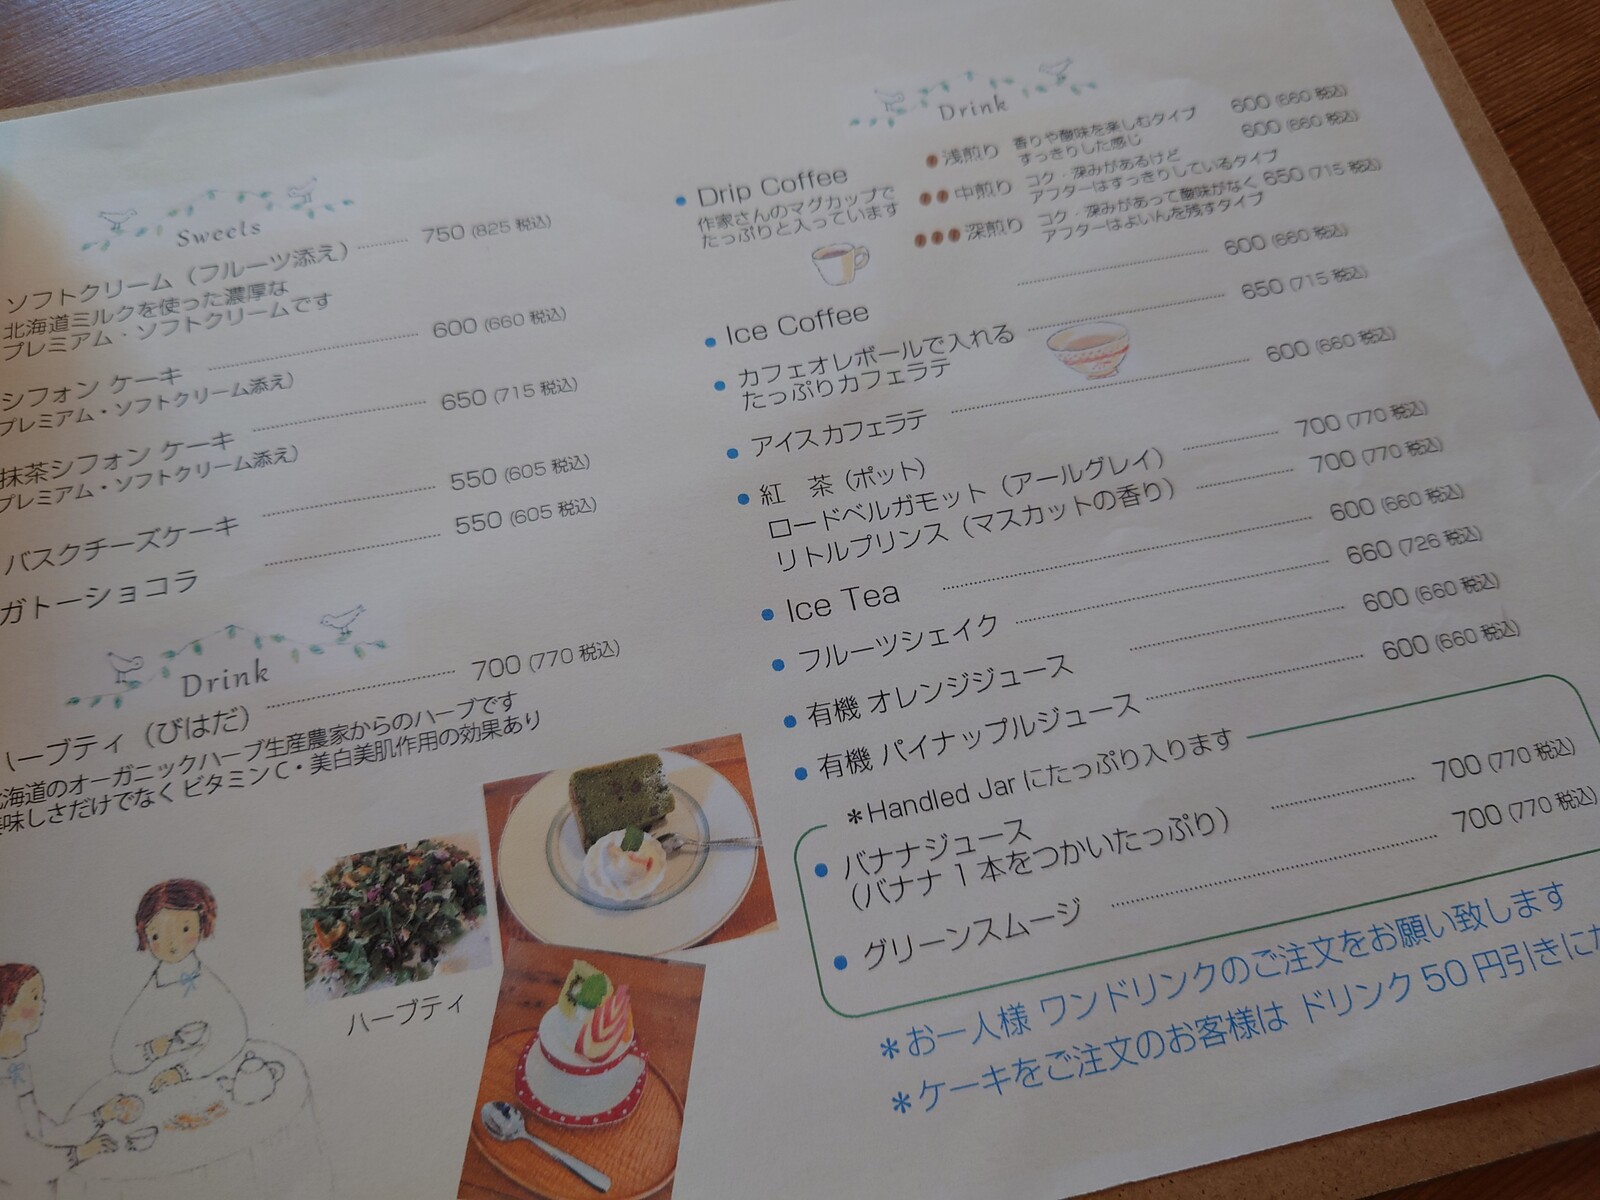 Sweets
ソフトクリーム（フルーツ添え） 750 (825 税込)
北海道ミルクを使った濃厚な
プレミアム・ソフトクリームです
シフォン ケーキ 600 (660 税込)
プレミアム・ソフトクリーム添え）
抹茶シフォン ケーキ 650 (715 税込)
プレミアム・ソフトクリーム添え）
バスクチーズケーキ 550 (605 税込)
ガトーショコラ 550 (605 税込)
Drink
ハーブティ（びはだ） 700 (770 税込)
北海道のオーガニックハーブ生産農家からのハーブです
美味しさだけでなくビタミンC・美白美肌作用の効果あり
ハーブティ
Drink
● Drip Coffee
作家さんのマグカップで
たっぷりと入っています
浅煎り 香りや酸味を楽しむタイプ 600 (660 税込)
すっきりした感じ
中煎り コク・深みがあるけど 600 (660 税込)
アフターはすっきりしているタイプ
深煎り コク・深みがあって酸味がなく 650 (715 税込)
アフターはよいんを残すタイプ
● Ice Coffee 600 (660 税込)
● カフェオレボールで入れる 650 (715 税込)
たっぷりカフェラテ
● アイスカフェラテ 600 (660 税込)
● 紅 茶（ポット）
ロードベルガモット（アールグレイ） 700 (770 税込)
リトルプリンス（マスカットの香り） 700 (770 税込)
● Ice Tea 600 (660 税込)
● フルーツシェイク 660 (726 税込)
● 有機 オレンジジュース 600 (660 税込)
● 有機 パイナップルジュース 600 (660 税込)
＊Handled Jar にたっぷり入ります
● バナナジュース 700 (770 税込)
（バナナ 1 本をつかいたっぷり）
● グリーンスムージ 700 (770 税込)
＊お一人様 ワンドリンクのご注文をお願い致します
＊ケーキをご注文のお客様は ドリンク 50 円引きに